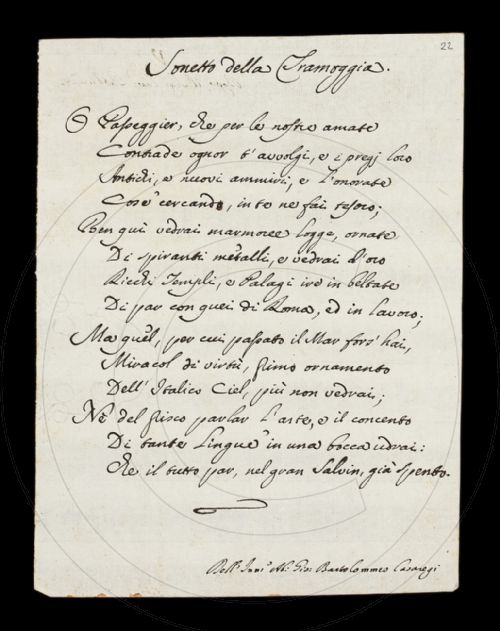 22
Sonetto della Tramoggia.
O Passeggier, che per le nostre amate
Contrade ognor t'avvolgi, e i pregj loro
Antichi, e nuovi ammiri, e l'onorate
Cose cercando, in te ne fai tesoro;
Ben qui vedrai marmoree logge, ornate
Di spiranti metalli, e vedrai d'oro
Ricchi Templi, e Palagi ire in beltate
Di par con quei di Roma, ed in lavoro;
Ma quel, per cui passato il Mar fors' hai,
Miracol di virtù, primo ornamento
Dell' Italico Ciel, più non vedrai;
Nè del prisco parlar l'arte, e il concento
Di tante lingue in una bocca udrai:
Che il tutto par, nel gran Salvin, già spento.
Dell' Bartolommeo Casaregi